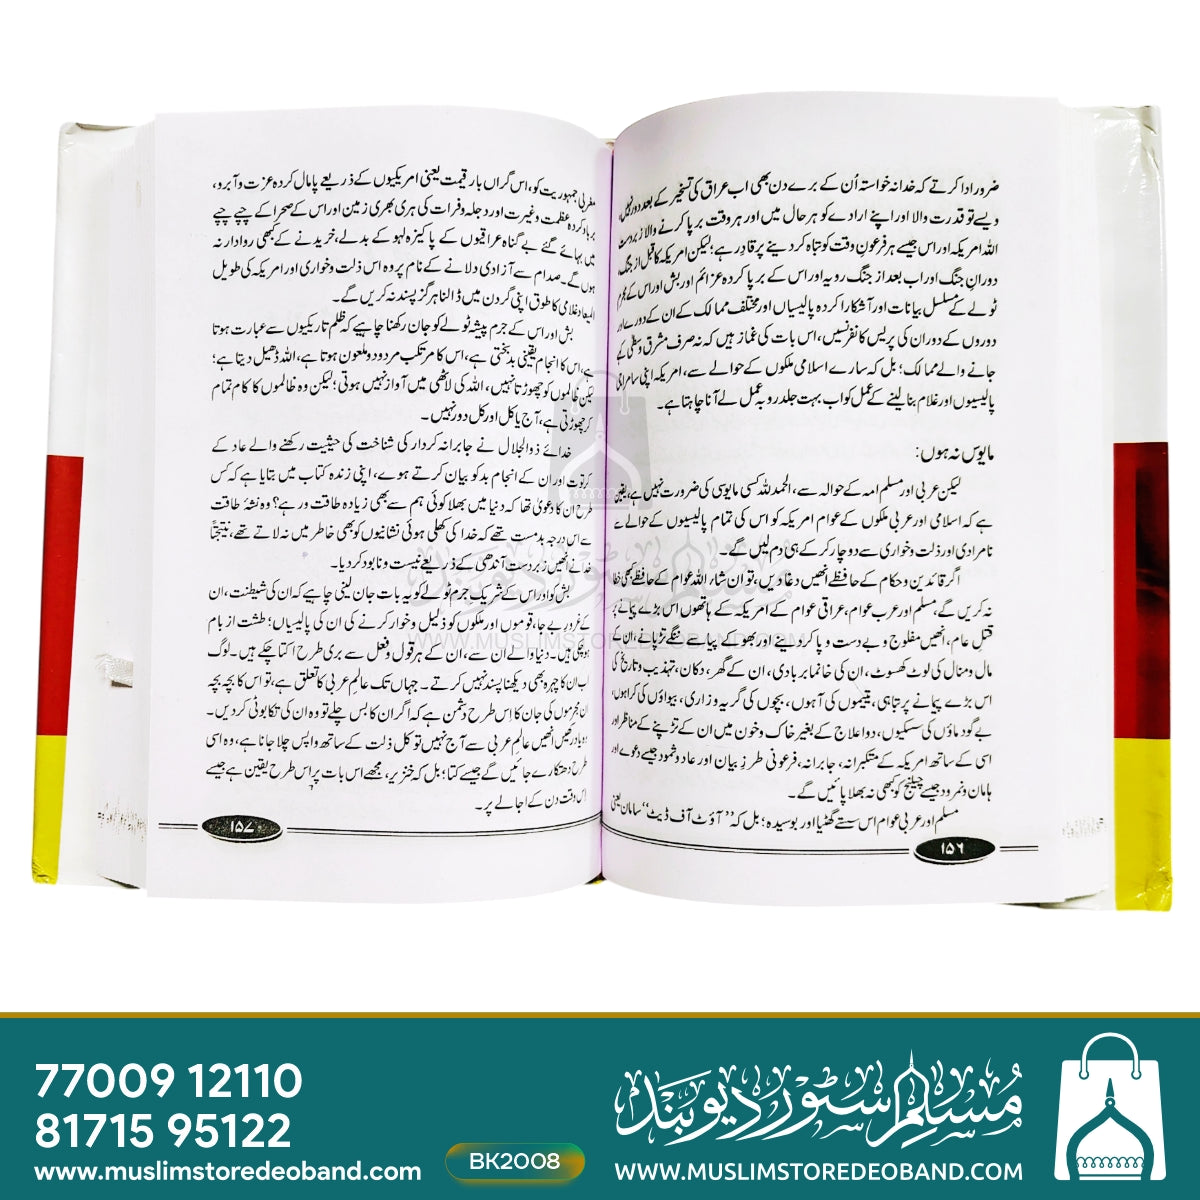 ضرور ادا کرتے کہ خدا نہ خواستہ اُن کے برے دن بھی اب عراق کی تسخیر کے بعد دور نہیں،
ویسے تو قدرت والا اور اپنے ارادے کو ہر حال میں اور ہر وقت برپا کرنے والا زبردست
اللہ امریکہ اور اس جیسے ہر فرعونِ وقت کو تباہ کر دینے پر قادر ہے؛ لیکن امریکہ کا قبل از جنگ،
دورانِ جنگ اور اب بعد از جنگ رویہ اور اس کے برپا کردہ عزائم اور بش اور اس کے مجرم
ٹولے کے مسلسل بیانات اور آشکارا کردہ پالیسیاں اور مختلف ممالک کے ان کے دورے اور
دوروں کے دوران کی پریس کانفرنسیں، اس بات کی غماز ہیں کہ نہ صرف مشرق وسطی کہے
جانے والے ممالک؛ بل کہ سارے اسلامی ملکوں کے حوالے سے، امریکہ اپنی سامراجی
پالیسیوں اور غلام بنا لینے کے عمل کو اب بہت جلد روبہ عمل لے آنا چاہتا ہے۔
مایوس نہ ہوں:
لیکن عربی اور مسلم امہ کے حوالہ سے، الحمد للہ کسی مایوسی کی ضرورت نہیں ہے، یقین
ہے کہ اسلامی اور عربی ملکوں کے عوام امریکہ کو اس کی تمام پالیسیوں کے حوالے سے
نامرادی اور ذلت وخواری سے دو چار کر کے ہی دم لیں گے۔
اگر قائدین و حکام کے حافظے انھیں دغا دیں، تو ان شاء اللہ عوام کے حافظے بھی خطا
نہ کریں گے، مسلم اور عرب عوام، عراقی عوام کے امریکہ کے ہاتھوں اس بڑے پیمانے پر
قتلِ عام، انھیں مفلوج و بے دست و پا کر دینے اور بھوکے پیاسے ننگے تڑپانے، ان کے
مال و منال کی لوٹ کھسوٹ، ان کی خانماں بربادی، ان کے گھر، دکان، تہذیب و تاریخ کی
اس بڑے پیمانے پر تباہی، یتیموں کی آہوں، بچوں کی گریہ و زاری، بیواؤں کی کراہوں،
بے گود ماؤں کی سسکیوں، دوا علاج کے بغیر خاک و خون میں ان کے تڑپنے کے مناظر اور
اسی کے ساتھ امریکہ کے متکبرانہ، جابرانہ، فرعونی طرزِ بیان اور عاد و ثمود جیسے دعوے اور
ہامان و نمرود جیسے چیلنج کو بھی نہ بھلا پائیں گے۔
مسلم اور عربی عوام اس سستے گھٹیا اور بوسیدہ؛ بل کہ ’’آؤٹ آف ڈیٹ‘‘ سامان یعنی
۱۵۶
مغربی جمہوریت کو، اس گراں بار قیمت یعنی امریکیوں کے ذریعے پامال کردہ عزت و آبرو،
برباد کردہ عظمت و غیرت اور دجلہ و فرات کی ہری بھری زمین اور اس کے صحرا کے چپے چپے
میں بہائے گئے بے گناہ عراقیوں کے پاکیزہ لہو کے بدلے، خریدنے کے کبھی روادار نہ
ہوں گے۔ صدام سے آزادی دلانے کے نام پر وہ اس ذلت و خواری اور امریکہ کی طویل
المیعاد غلامی کا طوق اپنی گردن میں ڈالنا ہرگز پسند نہ کریں گے۔
بش اور اس کے جرم پیشہ ٹولے کو جان رکھنا چاہیے کہ ظلم تاریکیوں سے عبارت ہوتا
ہے، اس کا انجام یقینی بدبختی ہے، اس کا مرتکب مردود و ملعون ہوتا ہے، اللہ ڈھیل دیتا ہے؛
لیکن ظالموں کو چھوڑتا نہیں، اللہ کی لاٹھی میں آواز نہیں ہوتی؛ لیکن وہ ظالموں کا کام تمام
کر چھوڑتی ہے، آج یا کل اور کل دور نہیں۔
خدائے ذوالجلال نے جابرانہ کردار کی شناخت کی حیثیت رکھنے والے عاد کے
کرتوت اور ان کے انجام بد کو بیان کرتے ہوے، اپنی زندہ کتاب میں بتایا ہے کہ کس
طرح ان کا دعویٰ تھا کہ دنیا میں بھلا کوئی ہم سے بھی زیادہ طاقت ور ہے؟ وہ نشۂ طاقت
سے اس درجہ بدمست تھے کہ خدا کی کھلی ہوئی نشانیوں کو بھی خاطر میں نہ لاتے تھے، نتیجتًا
خدا نے انھیں زبردست آندھی کے ذریعے نیست و نابود کر دیا۔
بش کو اور اس کے شریک جرم ٹولے کو یہ بات جان لینی چاہیے کہ ان کی شیطنت، ان
کے غرور بے جا، قوموں اور ملکوں کو ذلیل و خوار کرنے کی ان کی پالیساں؛ طشت از بام
ہو چکی ہیں۔ دنیا والے ان سے، ان کے ہر قول و فعل سے بری طرح اکتا چکے ہیں۔ لوگ
اب ان کا چہرہ بھی دیکھنا پسند نہیں کرتے۔ جہاں تک عالمِ عربی کا تعلق ہے، تو اس کا بچہ بچہ
ان مجرموں کی جان کا اِس طرح دشمن ہے کہ اگر ان کا بس چلے تو وہ ان کی تکا بوٹی کر دیں۔
وہ یاد رکھیں انھیں عالمِ عربی سے آج نہیں تو کل ذلت کے ساتھ واپس چلا جانا ہے، وہ اسی
طرح دھتکارے جائیں گے جیسے کتا؛ بل کہ خنزیر، مجھے اس بات پر اس طرح یقین ہے جیسے
اس وقت دن کے اجالے پر۔
۱۵۷
مسلم سٹور دیوبند
WWW.MUSLIMSTOREDEOBAND.COM
77009 12110
81715 95122
www.muslimstoredeoband.com
BK2008
مُسلم سٹور دیوبند
WWW.MUSLIMSTOREDEOBAND.COM